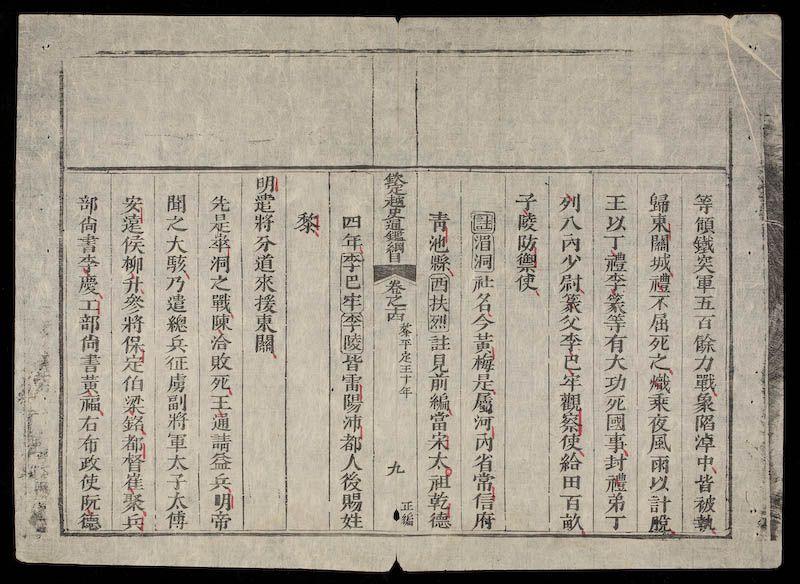 等領鐵突軍五百餘力戰象陷淖中皆被執
歸東關城禮不屈死之熾乘夜風雨以計脫
王以丁禮李篆等有大功死國事封禮弟丁
列入內少尉篆父李巴牢觀察使給田百畝
子陵防禦使
註湄洞社名今黃梅是屬河內省常信府
靑池縣西扶烈註見前編當宋太祖乾德
四年李巴牢李陵皆雷陽沛都人後賜姓
黎
欽定越史通鑑綱目
卷之十四
黎平定王十年
九
正編
明遣將分道來援東關
先是寧洞之戰陳洽敗死王通請益兵明帝
聞之大駭乃遣總兵征虜副將軍太子太傅
安遠侯柳升參將保定伯梁銘都督崔聚兵
部尙書李慶工部尙書黃福右布政使阮德